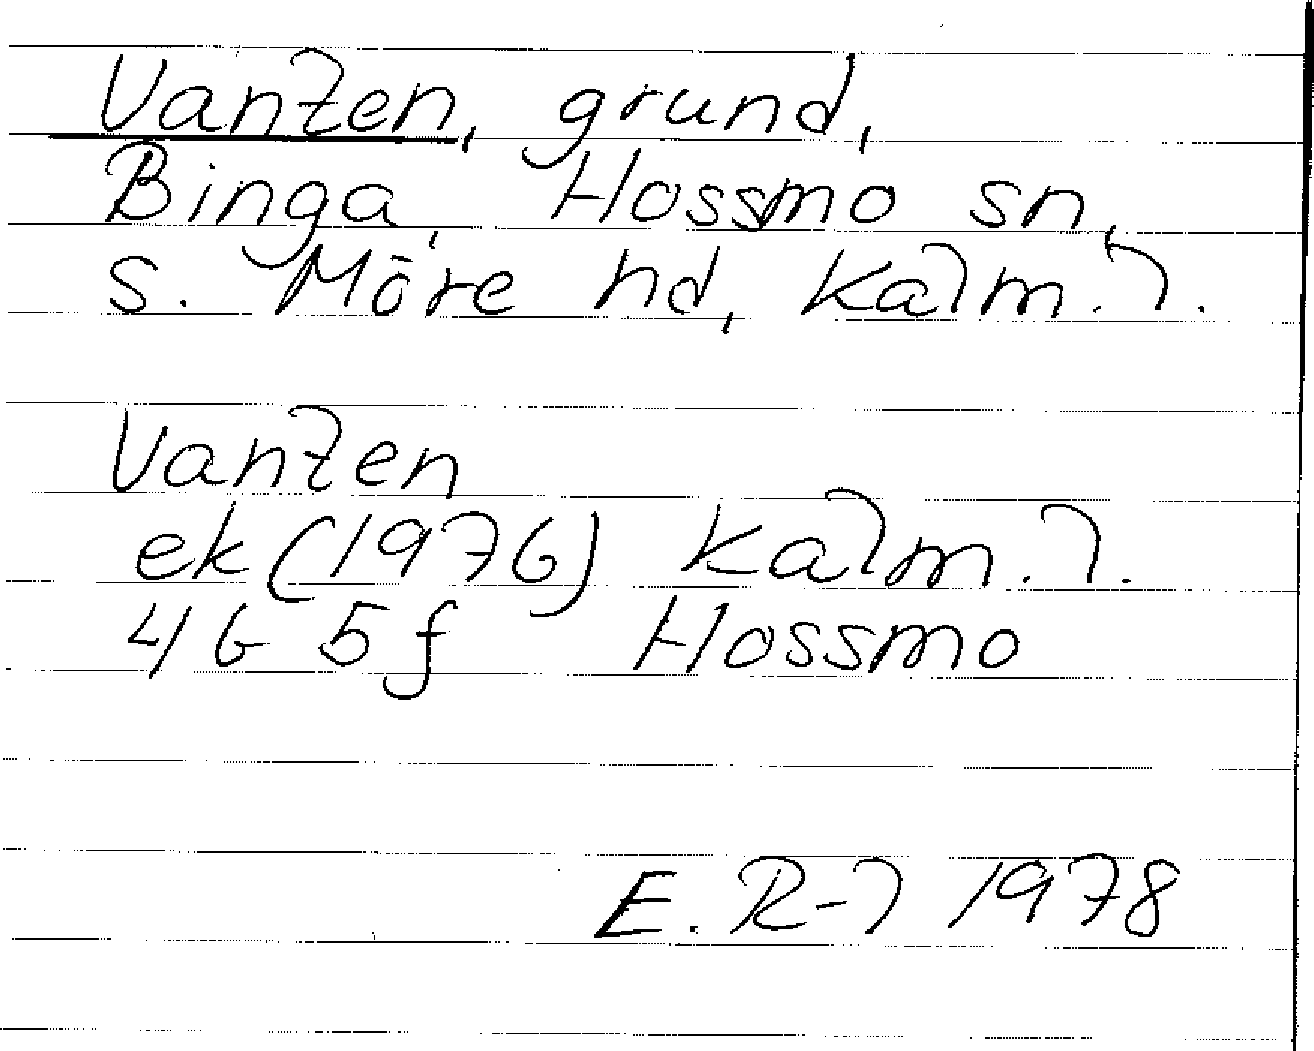 Vanten, grund,
Binga, Hossmo sn,
S. Möre hd, Kalm. l.
Vanten
ek (1976) Kalm. l.
4G 5f Hossmo
E. R-l 1978